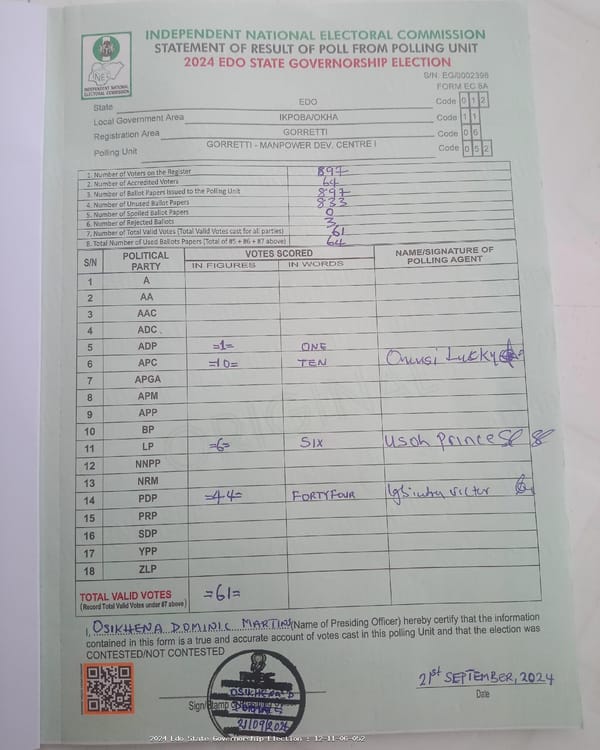 INDEPENDENT NATIONAL ELECTORAL COMMISSION
STATEMENT OF RESULT OF POLL FROM POLLING UNIT
2024 EDO STATE GOVERNORSHIP ELECTION
INEC
INDEPENDENT NATIONAL ELECTORAL COMMISSION
S/N: EG/0002398
FORM EC 8A
State EDO Code 0 1 2
Local Government Area IKPOBA/OKHA Code 1 1
Registration Area GORRETTI Code 0 6
Polling Unit GORRETTI - MANPOWER DEV. CENTRE I Code 0 5 2
1. Number of Voters on the Register 897
2. Number of Accredited Voters 64
3. Number of Ballot Papers Issued to the Polling Unit 897
4. Number of Unused Ballot Papers 833
5. Number of Spoiled Ballot Papers 0
6. Number of Rejected Ballots 3
7. Number of Total Valid Votes (Total Valid Votes cast for all parties) 61
8. Total Number of Used Ballots Papers (Total of #5 + #6 + #7 above) 64
S/N POLITICAL PARTY VOTES SCORED NAME/SIGNATURE OF POLLING AGENT
IN FIGURES IN WORDS
1 A
2 AA
3 AAC
4 ADC
5 ADP =1= ONE
6 APC =10= TEN Lucky
7 APGA
8 APM
9 APP
10 BP
11 LP =6= SIX Usoh Prince
12 NNPP
13 NRM
14 PDP =44= FORTYFOUR Victor
15 PRP
16 SDP
17 YPP
18 ZLP
TOTAL VALID VOTES =61=
(Record Total Valid Votes under #7 above)
I, OSIKHENA DOMINIC MARTINS (Name of Presiding Officer) hereby certify that the information
contained in this form is a true and accurate account of votes cast in this polling Unit and that the election was
CONTESTED/NOT CONTESTED
Sign/Stamp
OSIKHENA D
21/09/2024
21st SEPTEMBER, 2024
Date
2024 Edo State Governorship Election : 12-11-06-052